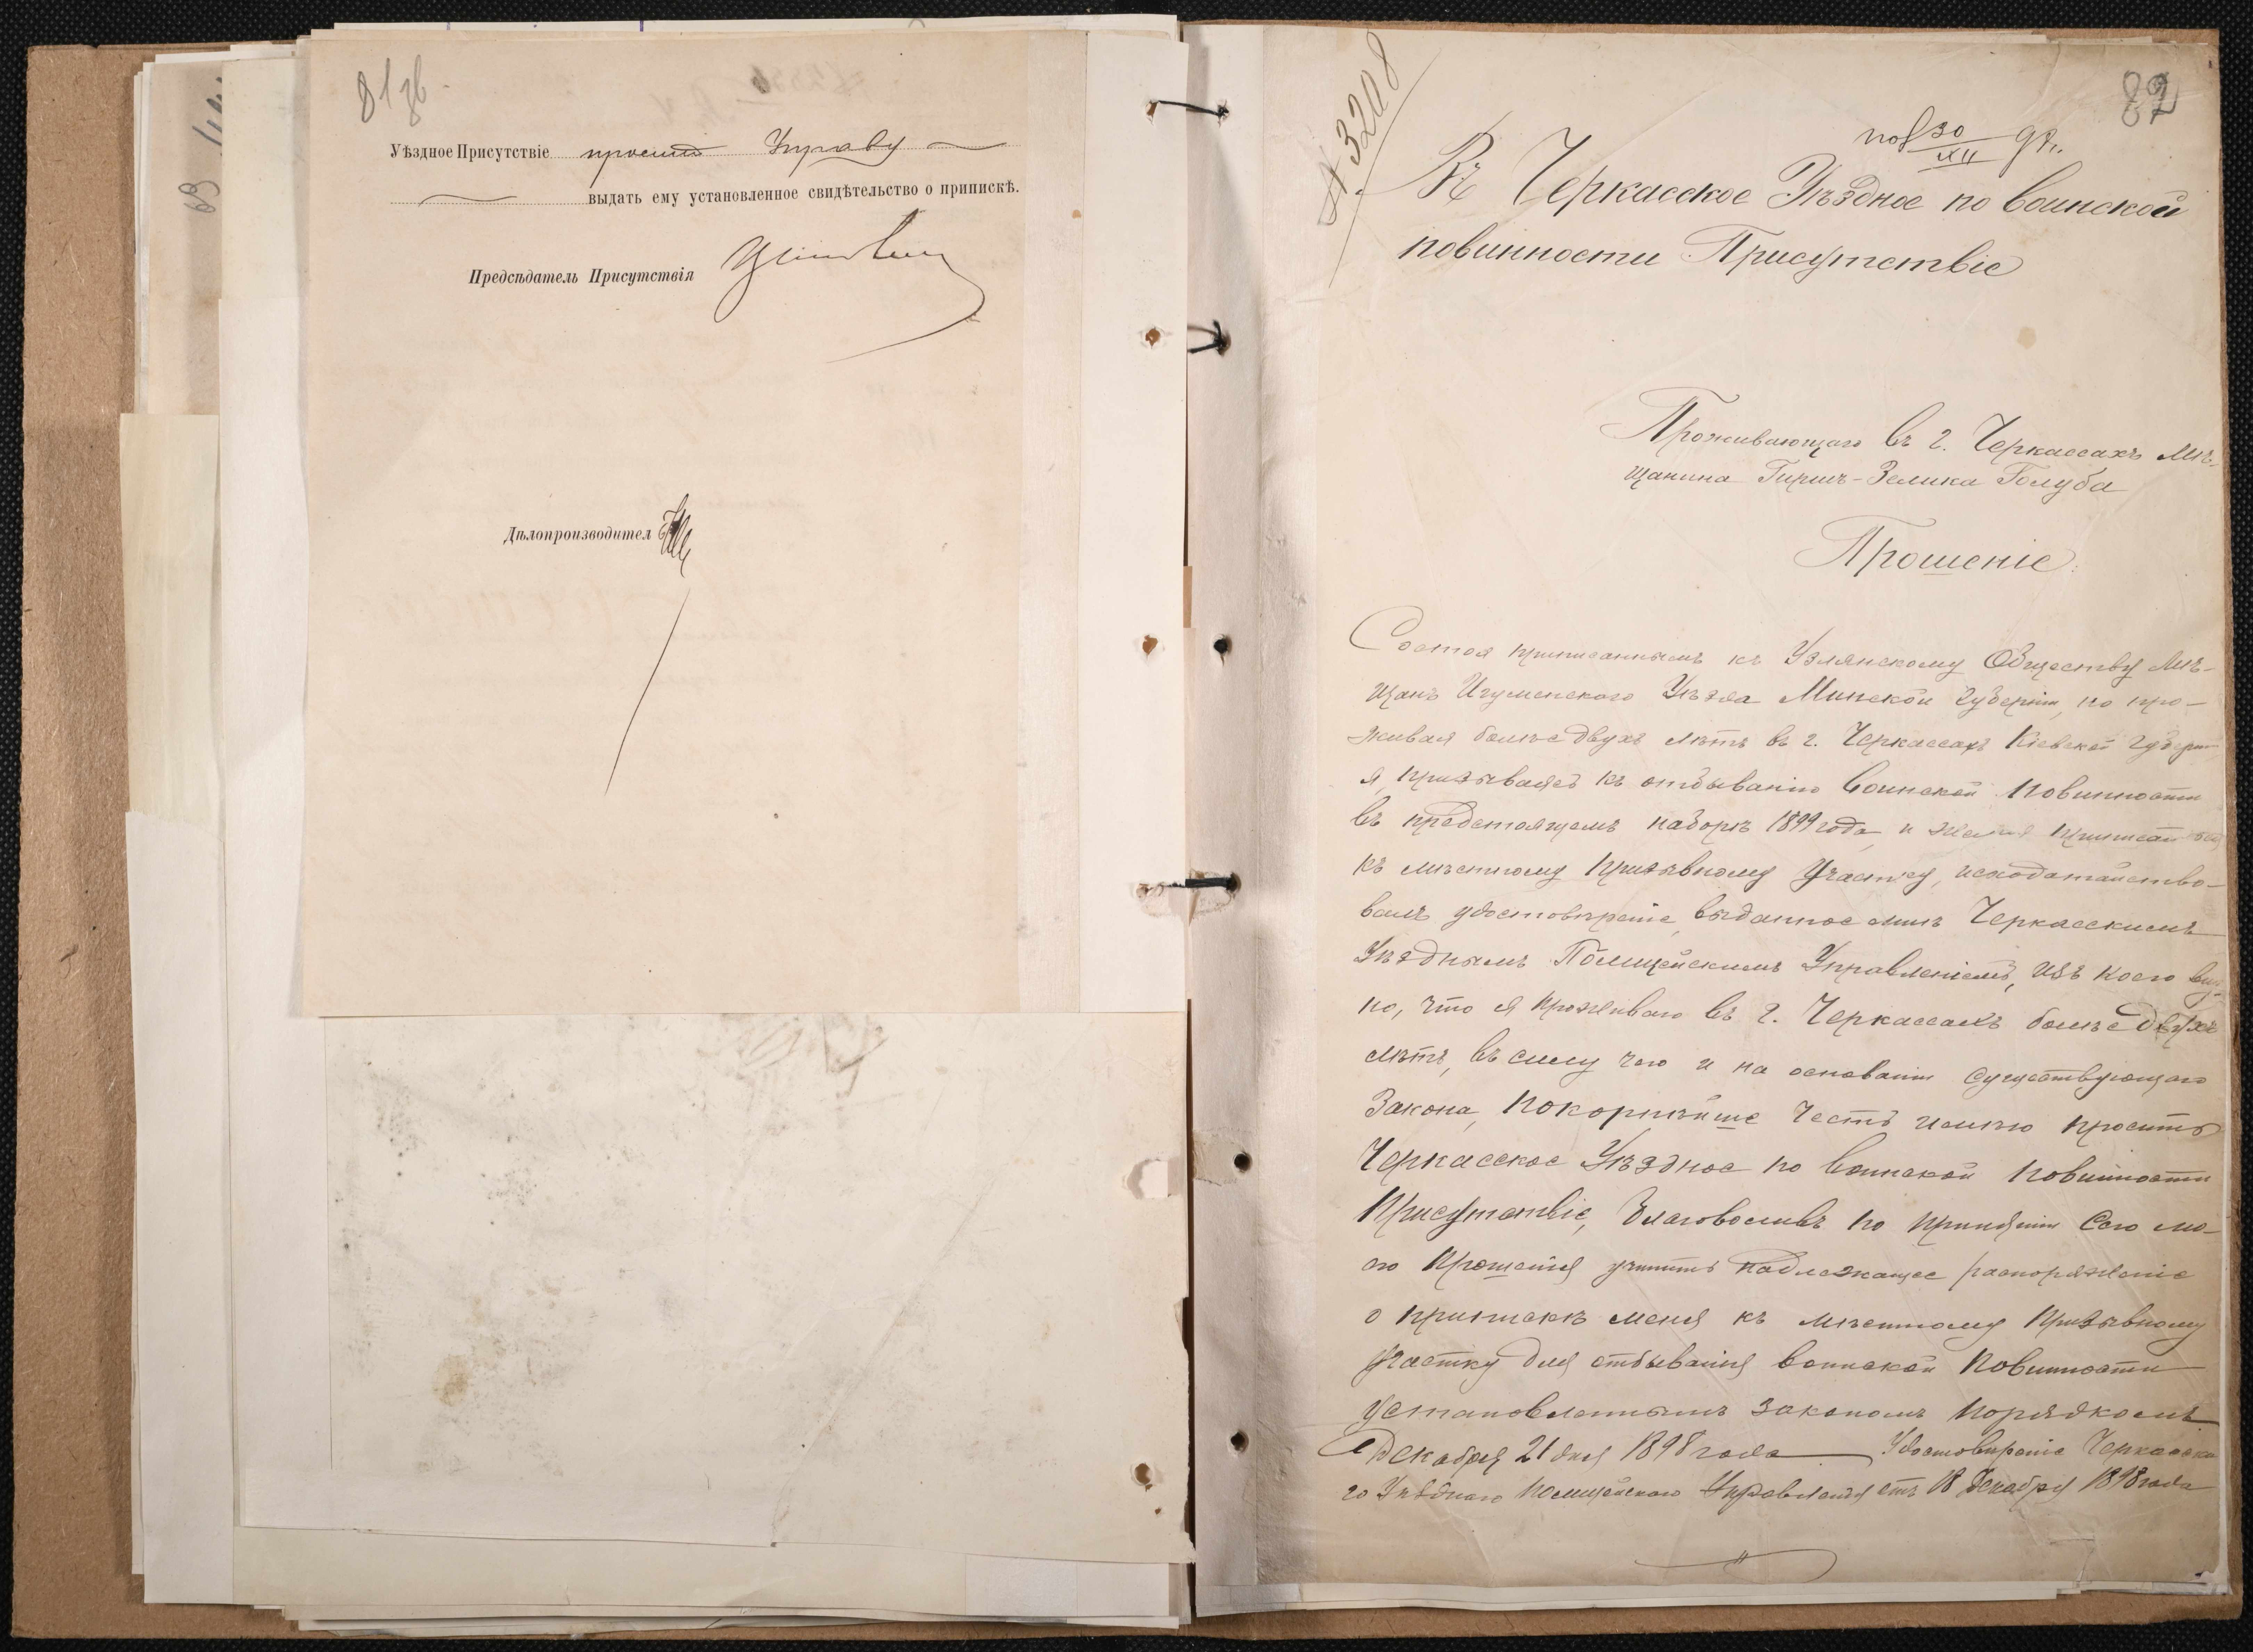 81 зв
Уѣздное Присутствіе проситъ Управу
выдать ему установленное свидѣтельство о припискѣ.
Предсѣдатель Присутствія
Дѣлопроизводител
№ 3208
82
пол 30/XII 98 г.
Въ Черкасское Уѣздное по воинской
повинности Присутствіе
Проживающаго въ г. Черкассахъ Мѣ-
щанина Гиршъ-Зелика Голуба
Прошеніе
Состоя приписаннымъ къ Узлянскому Обществу Мѣ-
щанъ Игуменскаго Уѣзда Минской губерніи, но про-
живая болѣе двухъ лѣтъ въ г. Черкассахъ Кіевской губерніи
я, призываясь къ отбыванію воинской повинности
въ предстоящемъ наборѣ 1899 года, и желая приписаться
къ мѣстному призывному участку, исходатайство-
валъ удостовѣреніе, выданное мнѣ Черкасскимъ
Уѣзднымъ Полицейскимъ Управленіемъ, изъ коего вид-
но, что я проживаю въ г. Черкассахъ болѣе двухъ
лѣтъ, въ силу чего и на основаніи существующаго
Закона, покорнѣйше честь имѣю просить
Черкасское Уѣздное по воинской повинности
Присутствіе, благоволивъ по принятіи сего мо-
его прошенія учинить надлежащее распоряженіе
о припискѣ меня къ мѣстному призывному
участку для отбыванія воинской повинности
установленнымъ закономъ порядкомъ
Декабря 21 дня 1898 года Удостовѣреніе Черкасска-
го Уѣзднаго Полицейскаго Управленія отъ 18 Декабря 1898 года